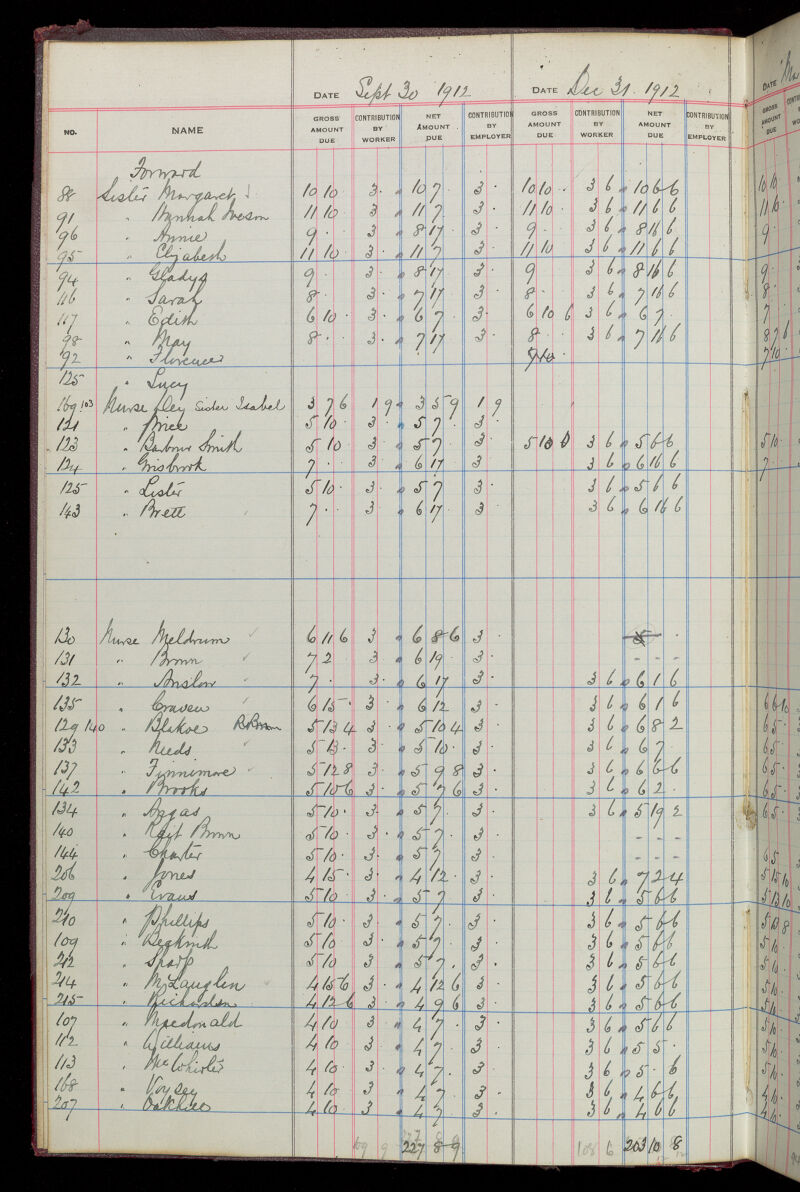 DATE Sept 30 1912 DATE Dec 31. 1912
NO. NAME GROSS AMOUNT DUE CONTRIBUTION BY WORKER NET AMOUNT DUE CONTRIBUTION BY EMPLOYER GROSS AMOUNT DUE CONTRIBUTION BY WORKER NET AMOUNT DUE CONTRIBUTION BY EMPLOYER
Forward
88 Sister Margaret 10 10 3 10 7 3 10 10 3 6 10 6 6
91 " Hannah 11 10 3 11 7 3 11 10 3 6 11 6 6
96 " Annie 9 3 8 17 3 9 3 6 8 16 6
95 " Elizabeth 11 10 3 11 7 3 11 10 3 6 11 6 6
94 " Gladys 9 3 8 17 3 9 3 6 8 16 6
116 " Sarah 8 3 7 17 3 8 3 6 7 16 6
117 " Edith 6 10 3 6 7 3 6 10 6 3 6 6 7
98 " May 8 3 7 17 3 8 3 6 7 16 6
92 " Florence
125 " Lucy
169 103 Nurse Ley Sister Isabel 3 7 6 1 9 3 5 9 1 9
121 " Price 5 10 3 5 7 3
123 " Barbour Smith 5 10 3 5 7 3 5 10 0 3 6 5 6 6
124 " Grisbrook 7 3 6 17 3 3 6 6 16 6
125 " Lister 5 10 3 5 7 3 3 6 5 6 6
143 " Brett 7 3 6 17 3 3 6 6 16 6
130 Nurse Meldrum 6 11 6 3 6 8 6 3
131 " Brown 7 2 3 6 19 3 - - -
132 " Anslow 7 3 6 17 3 3 6 6 1 6
135 " Craven 6 15 3 6 12 3 3 6 6 1 6
129 140 " Blakoe 5 13 4 3 5 10 4 3 3 6 6 8 2
133 " Needs 5 13 3 5 10 3 3 6 6 7
137 " Finnimore 5 12 8 3 5 9 8 3 3 6 6 6 6
142 " Brooks 5 10 6 3 5 7 6 3 3 6 6 2
134 " Aggas 5 10 3 5 7 3 3 6 5 19 2
140 " Brown 5 10 3 5 7 3 - - -
144 " Charter 5 10 3 5 7 3 - - -
206 " Jones 4 15 3 4 12 3 3 6 7 2 4
209 " Evans 5 10 3 5 7 3 3 6 5 6 6
210 " Phillips 5 10 3 5 7 3 3 6 5 6 6
109 " Beckwith 5 10 3 5 7 3 3 6 5 6 6
212 " 5 10 3 5 7 3 3 6 5 6 6
214 " McLauglen 4 15 6 3 4 12 6 3 3 6 5 6 6
215 " Richardson 4 12 6 3 4 9 6 3 3 6 5 6 6
107 " Macdonald 4 10 3 4 7 3 3 6 5 6 6
112 " Williams 4 10 3 4 7 3 3 6 5 5
113 " McWhirter 4 10 3 4 7 3 3 6 5 6
168 " Voysey 4 10 3 4 7 3 3 6 4 6 6
207 " Oakhill 4 10 3 4 7 3 3 6 4 6 6
109 9 227 8 9 108 6 203 10 8